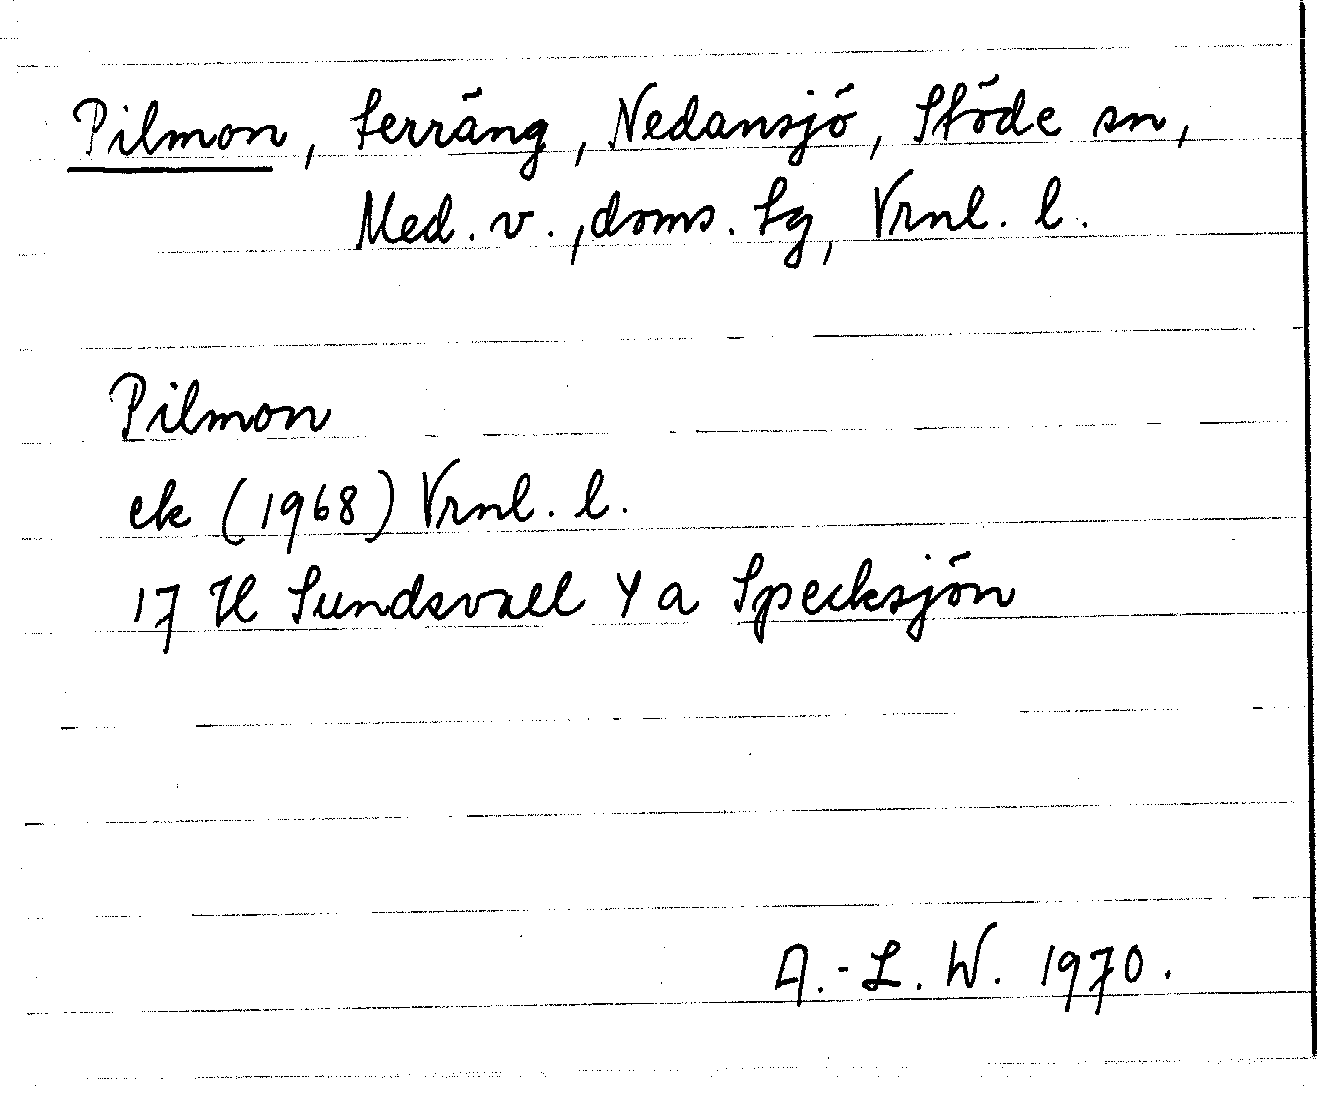 Pilmon, terräng, Nedansjö, Stöde sn,
Med. v., doms. tg, Vrnl. l.
Pilmon
ek (1968) Vrnl. l.
17 H Sundsvall 4 a Specksjön
A.-L. W. 1970.